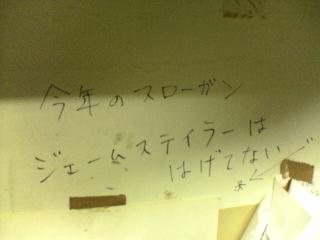 今年のスローガン
ジェームステイラーは
はげてない